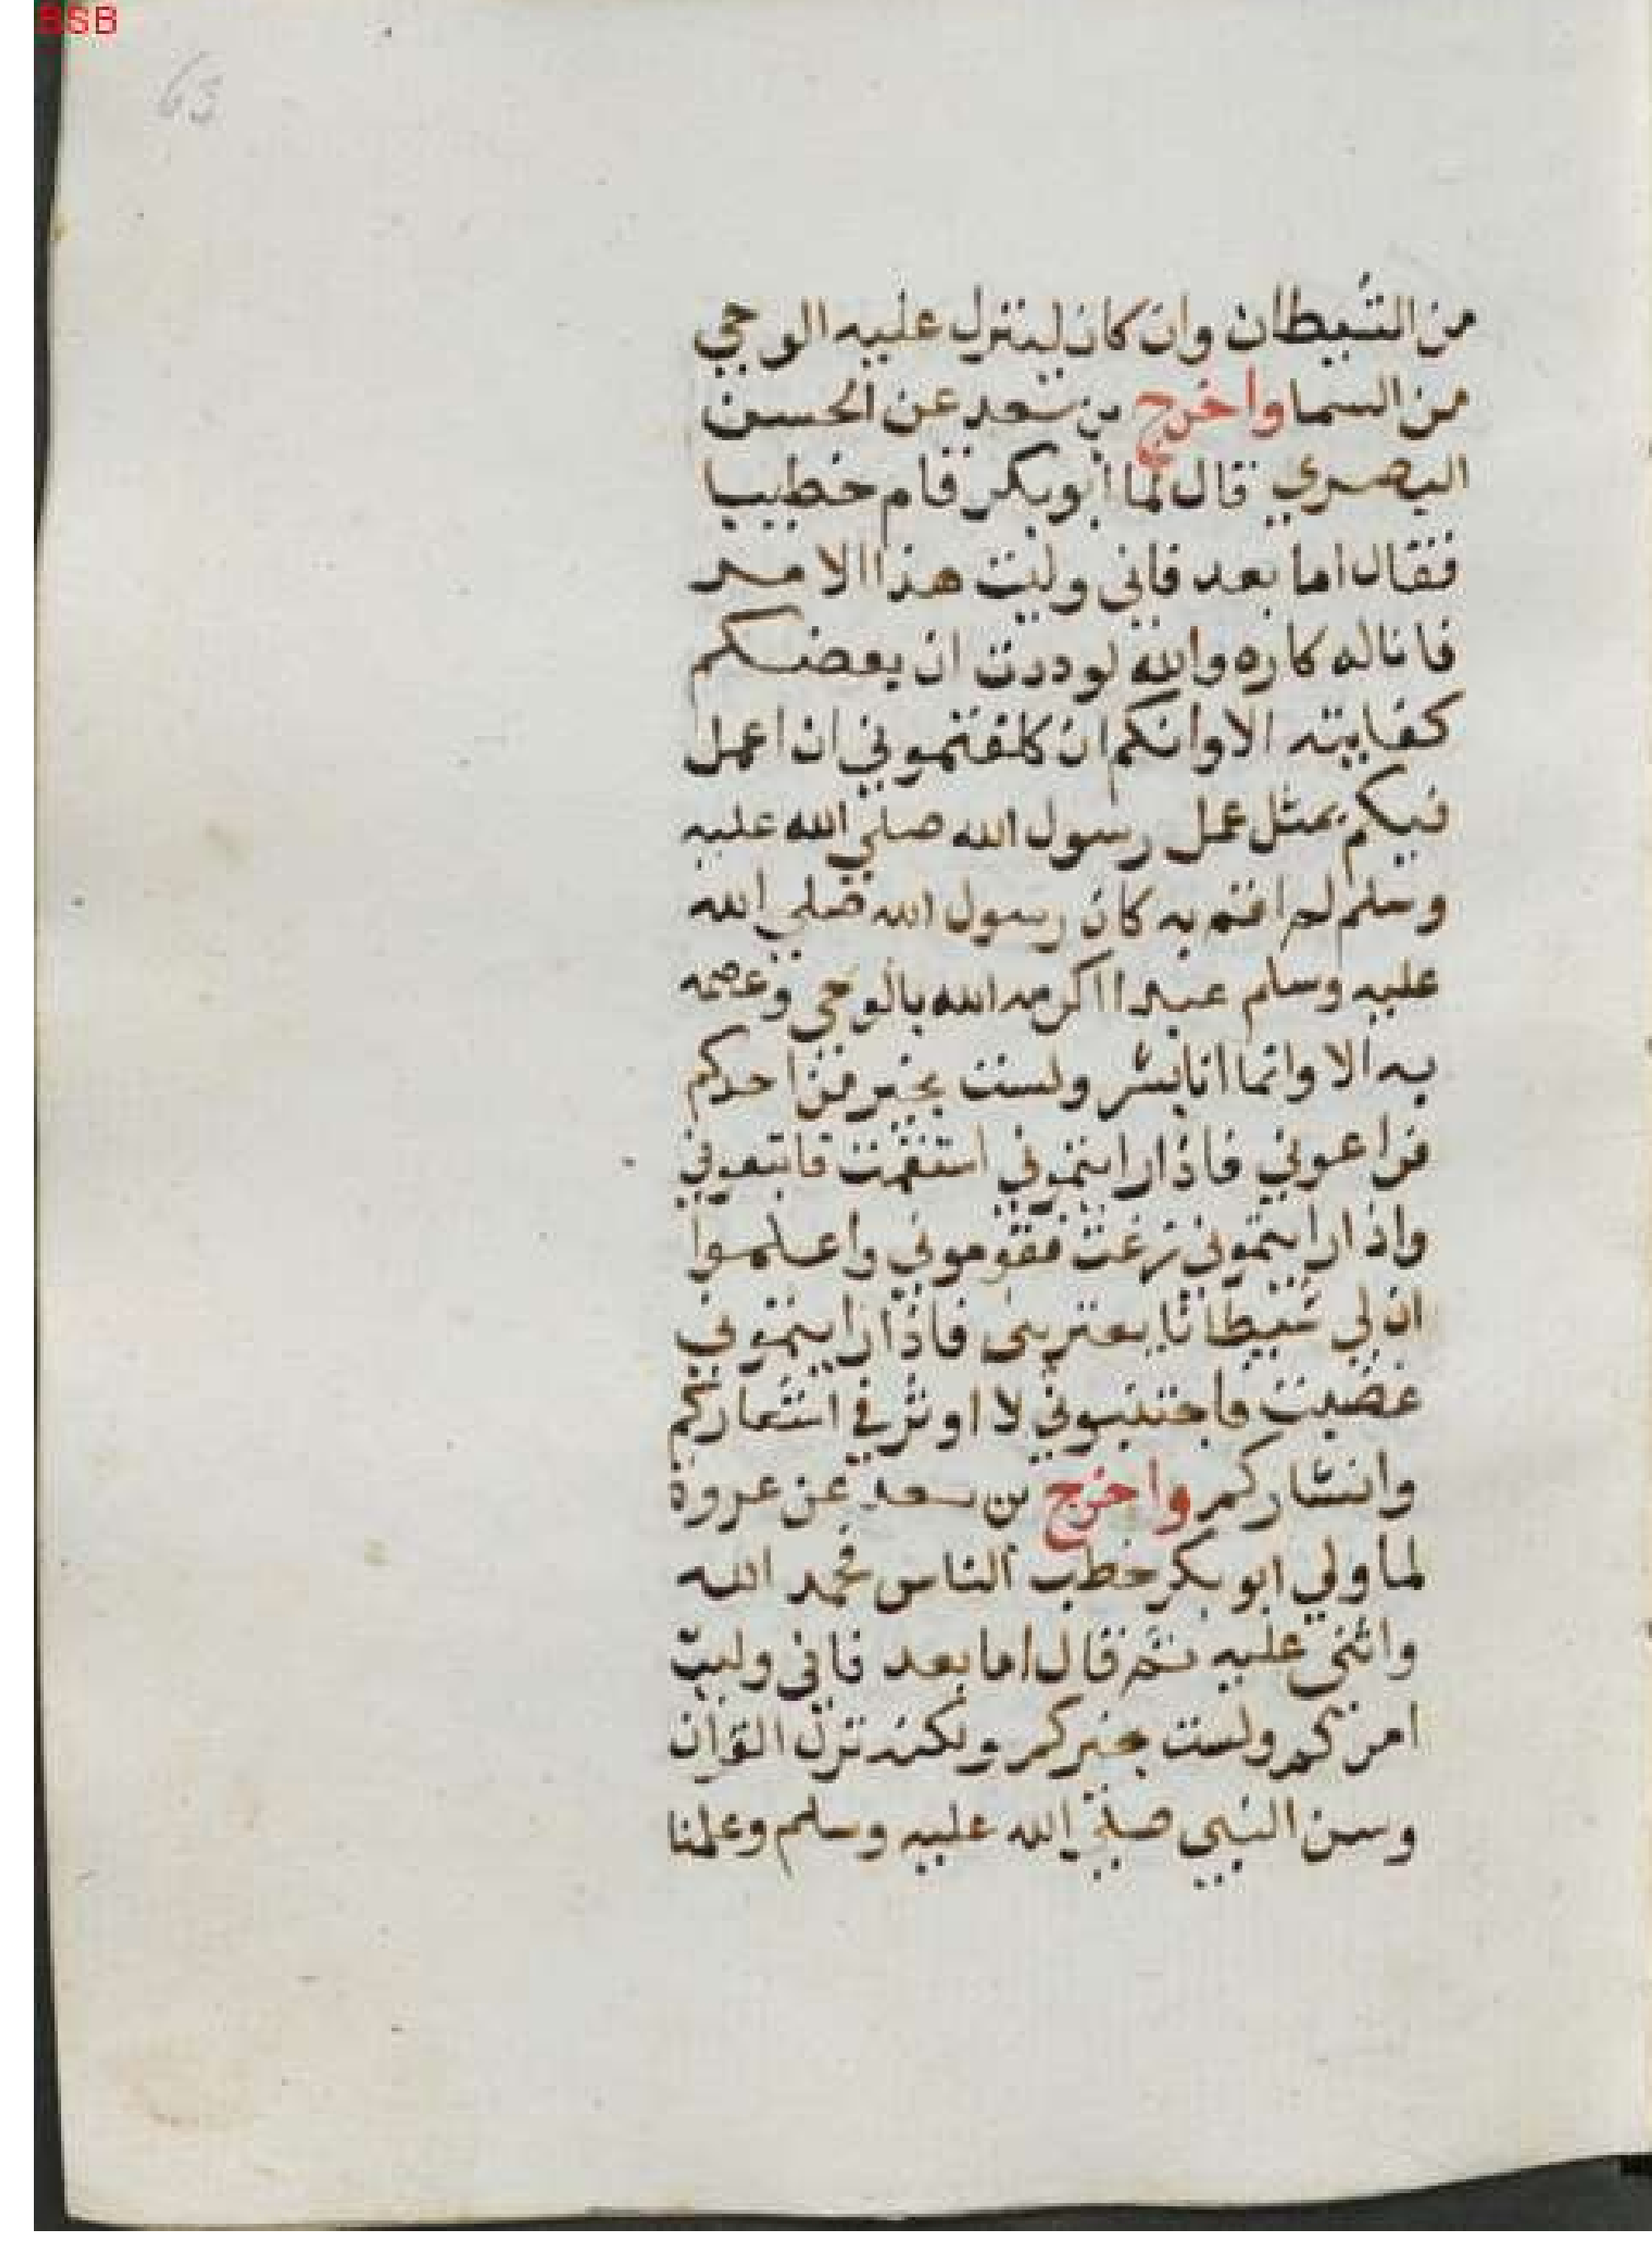 BSB
63
من الشيطان وان كان لينزل عليه الوحي
من السما واخرج بن سعد عن الحسن
البصري قال لما ابوبكر قام خطيبا
فقال اما بعد فاني وليت هذا الامر
فاناله كاره والله لوددت ان بعضكم
كفانيه الا وانكم ان كلفتموني ان اعمل
فيكم بمثل عمل رسول الله صلي الله عليه
وسلم لم اقم به كان رسول الله صلي الله
عليه وسلم عبدا اكرمه الله بالوحي وعصمه
به الا وانما انا بشر ولست بخير من احدكم
فراعوني فاذا رايتموني استقمت فاتبعوني
واذا رايتموني زغت فقوموني واعلموا
ان لي شيطانا يعتريني فاذا رايتموني
غضبت فاجتنبوني لا اوثر في اشعاركم
وابشاركم واخرج بن سعد عن عروة
لما ولي ابوبكر خطب الناس فحمد الله
واثني عليه ثم قال اما بعد فاني وليت
امركم ولست بخيركم ولكنه نزل القران
وسن النبي صلي الله عليه وسلم وعلمنا